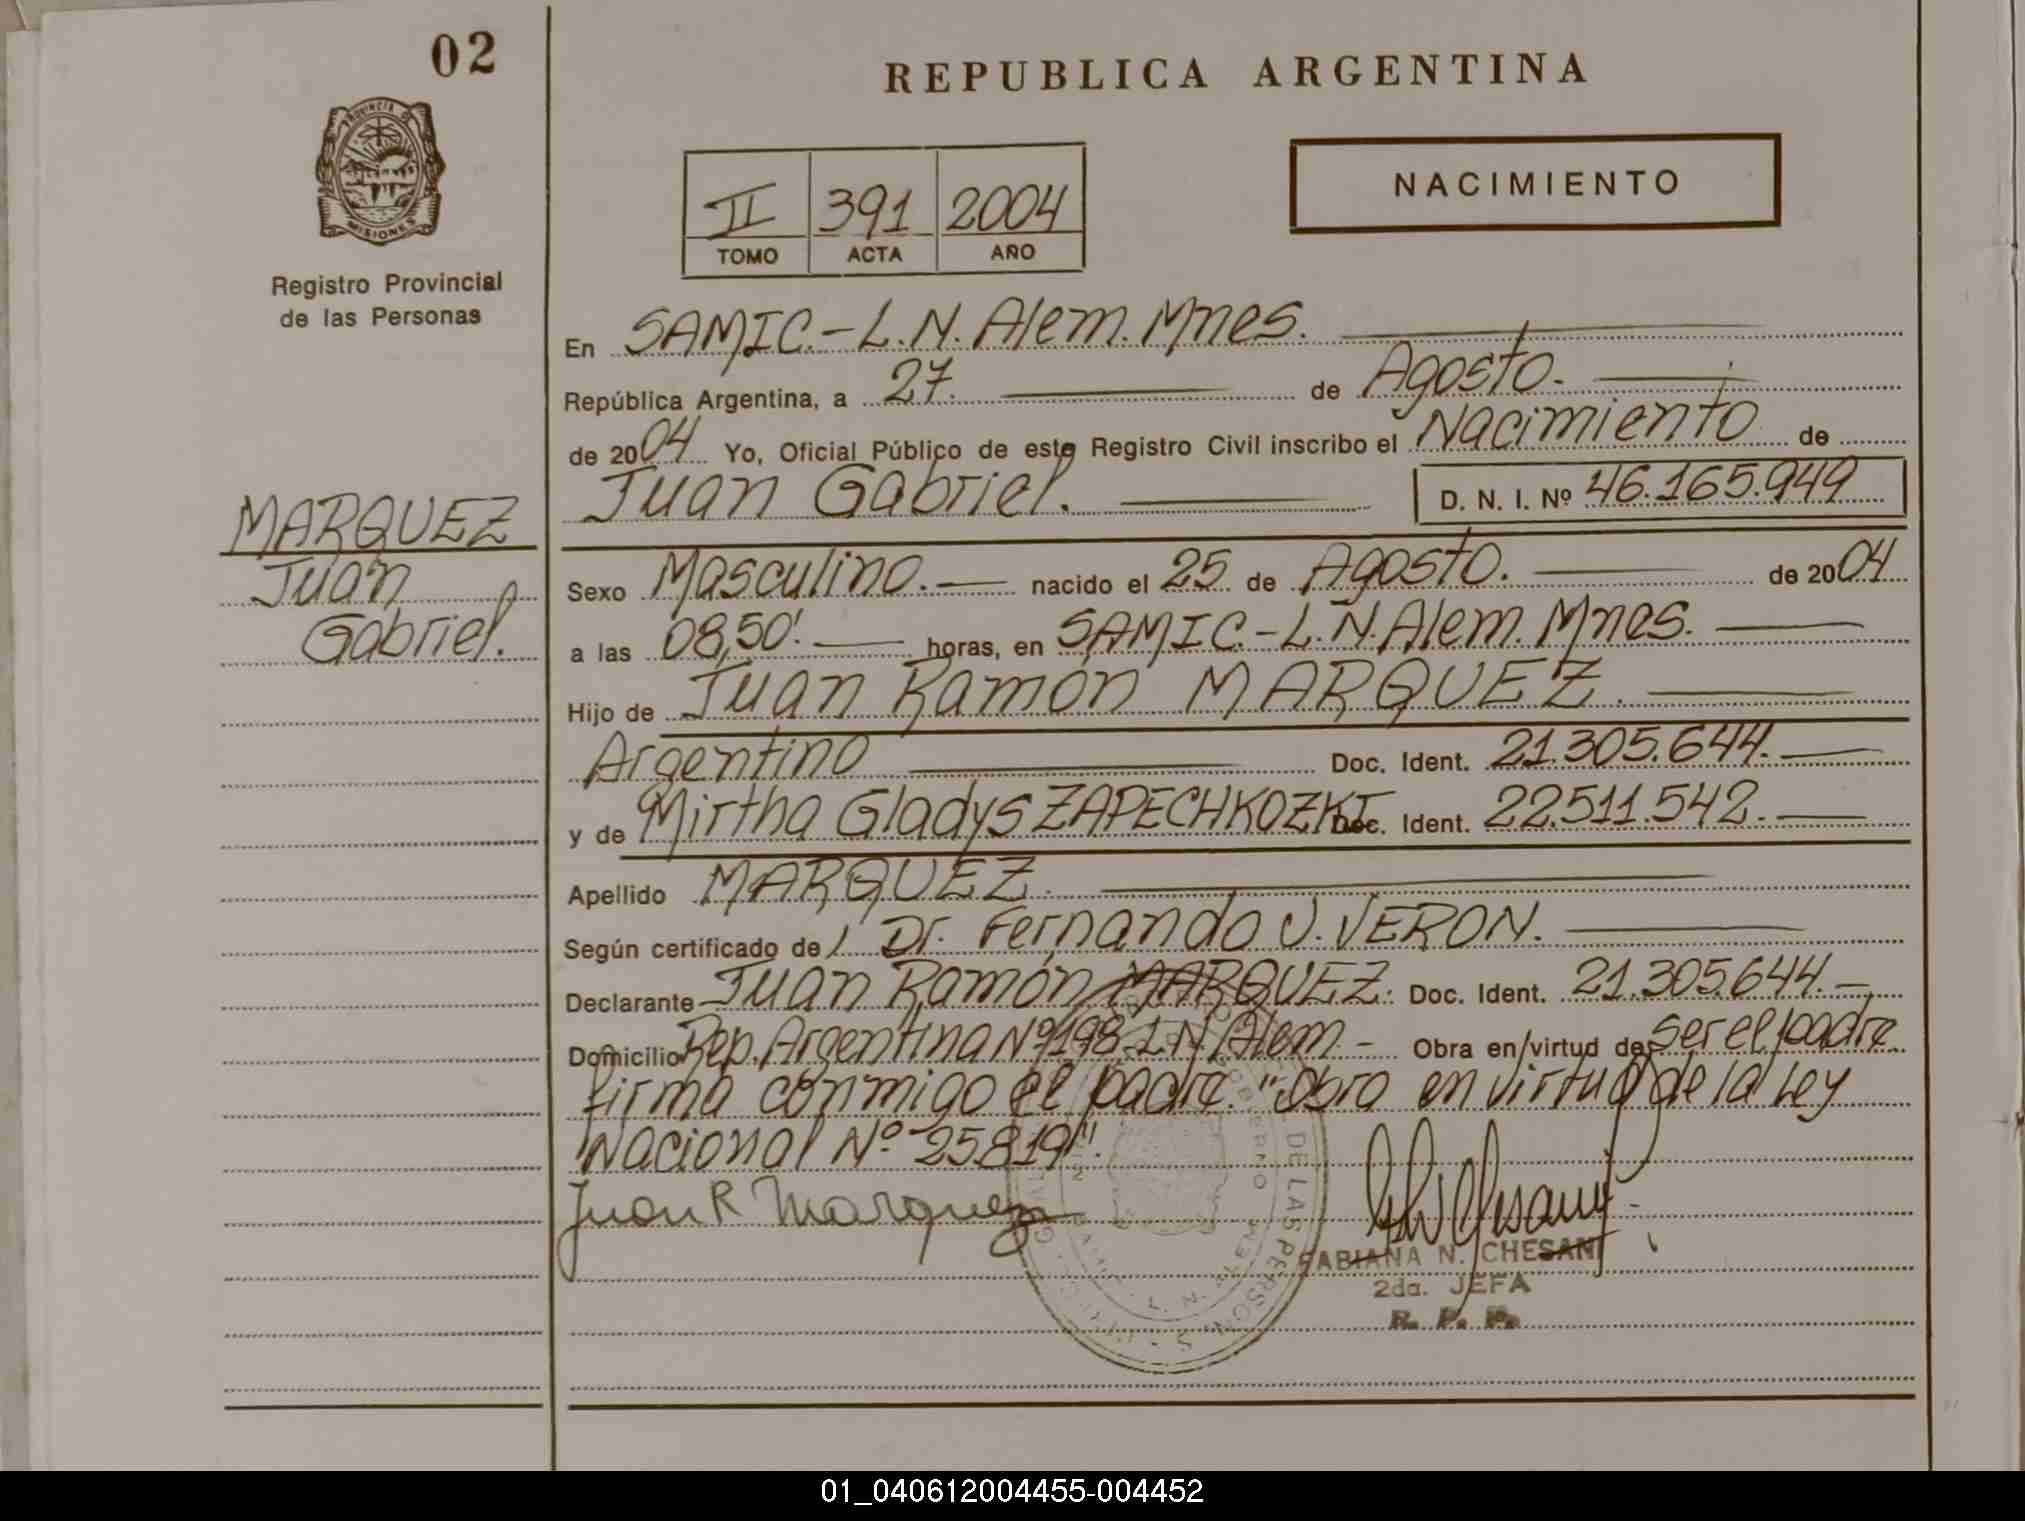 02
REPUBLICA ARGENTINA
PROVINCIA DE
MISIONES
Registro Provincial
de las Personas
II 391 2004
TOMO ACTA AÑO
NACIMIENTO
En SAMIC.-L.N.Alem.Mnes.
República Argentina, a 27. de Agosto.
de 2004 Yo, Oficial Público de este Registro Civil inscribo el Nacimiento de
Juan Gabriel. D. N. I. Nº 46.165.949
MARQUEZ
Juan
Gabriel.
Sexo Masculino. nacido el 25 de Agosto. de 2004
a las 08,50'. horas, en SAMIC.-L.N.Alem.Mnes.
Hijo de Juan Ramón MARQUEZ.
Argentino Doc. Ident. 21.305.644.
y de Mirtha Gladys ZAPECHKOZKI Doc. Ident. 22.511.542.
Apellido MARQUEZ.
Según certificado de Dr. Fernando J. VERON.
Declarante Juan Ramón MARQUEZ. Doc. Ident. 21.305.644.
Domicilio Rep. Argentina Nº 198 L N Alem - Obra en virtud de ser el padre
firma conmigo el padre. "Obra en virtud de la Ley
Nacional Nº 25819".
Juan R Marquez
FABIANA N. CHESANI
2da. JEFA
R. P. P.
DE LAS PERSONAS
01_040612004455-004452